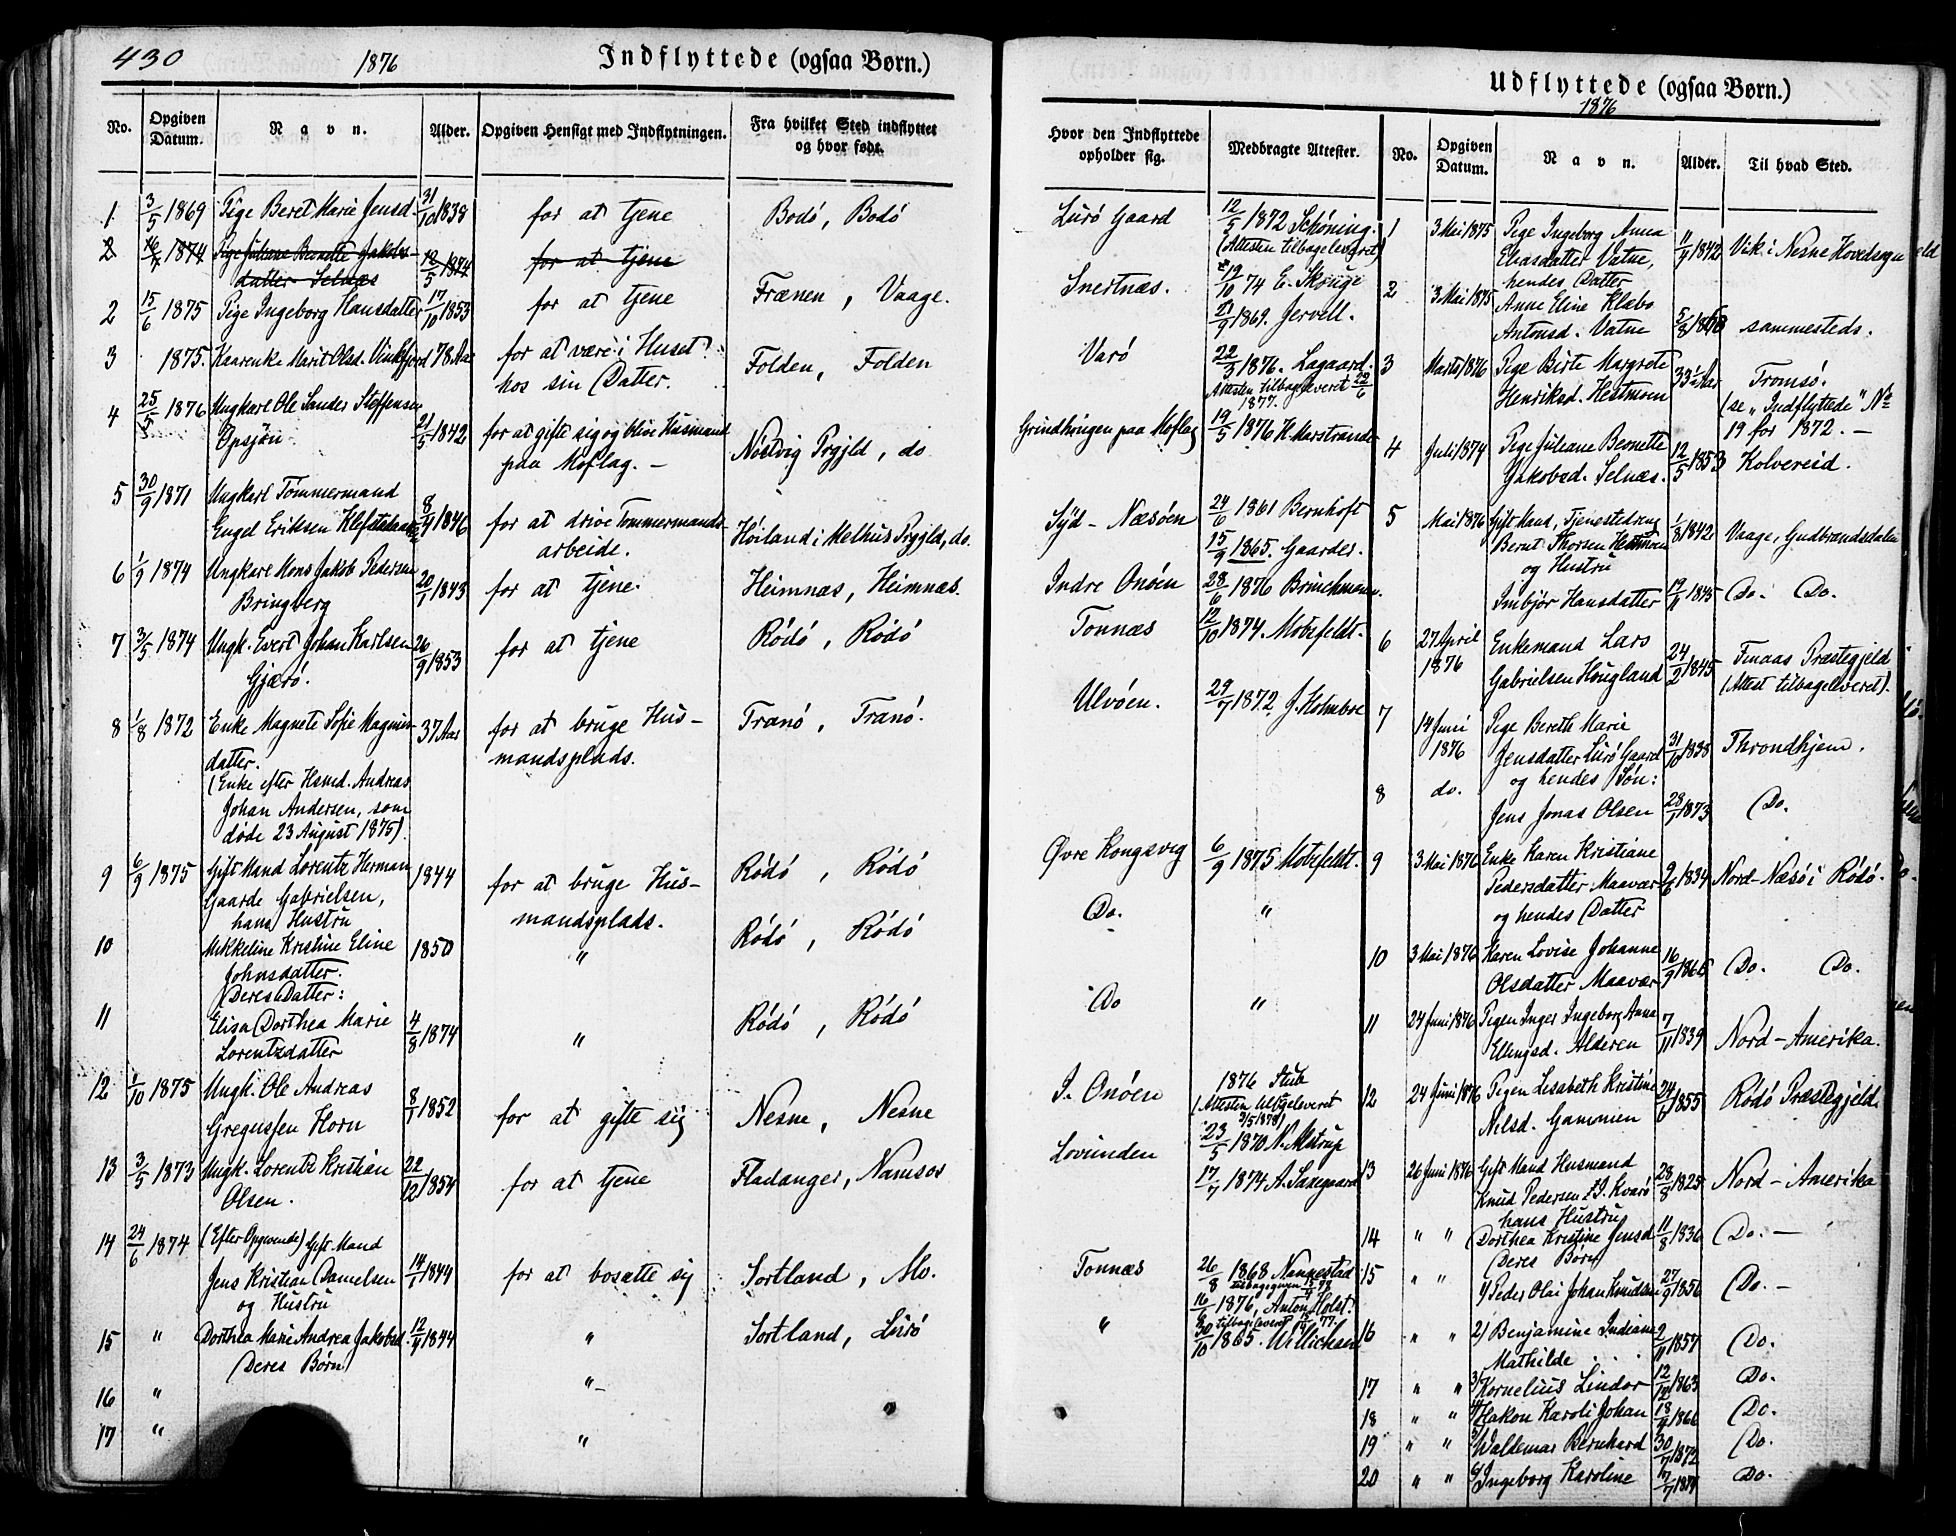 430
1876
Indflyttede (ogsaa Børn.)
No.
Opgiven Datum.
Navn.
Alder.
Opgiven Hensigt med Indflytningen.
Fra hvilket Sted indflyttet og hvor født.
1 3/5 1869 Pige Beret Marie Jensd. 31/10 1838 for at tjene Bodö, Bodö
2 1874 Pige Juliane Bernette Jakobs- 12/5 for at tjene
datter Selnæs
2 15/6 1875 Pige Ingeborg Hansdatter 17/10 1853 for at tjene Frænen, Vaage.
3 1875. Kaarenke Marit Olsd. 78 Aar for at være i Huset Folden, Folden
hos sin Datter.
4 25/5 1876 Ungkarl Ole Sander Steffensen 21/5 1842 for at gifte sig og blive Husmand Nöstvig Prgjld, do
paa Moflag. —
5 30/9 1871 Ungkarl Tömmermand
Engel Eriksen 8/4 1846 for at drive Tømmermands- Höiland i Melhus Prgjld, do.
arbeide.
6 1/9 1874 Ungkarl Mons Jakob Pedersen 20/1 1843 for at tjene. Heimnæs, Heimnæs.
Bringberg
7 3/5 1874 Ungk. Evert Johan Karlsen 26/9 1853 for at tjene Rödö, Rödö
Gjærö.
8 1/8 1872 Enke Magnete Sofie Magnus 37 Aar for at bruge Hus- Tranö, Tranö.
datter. mandsplads.
(Enke efter Hsmd. Andreas
Johan Andersen, som
døde 23 August 1875).
9 6/9 1875 Gift Mand Lorentz Herman 1844 for at bruge Hus- Rödö, Rödö
Gaarde Gabrielsen, mandsplads.
hans Hustru
10 Mikkeline Kristine Eline 1850 " Rödö, Rödö
Johnsdatter.
Deres Datter:
11 Elisa Dorthea Marie 4/8 1874 " Rödö, Rödö
Lorentzdatter
12 1/10 1875 Ungk. Ole Andreas 8/1 1852 for at gifte sig Nesne, Nesne
Gregussen Horn
13 3/5 1873 Ungk. Lorentz Kristian 22/12 1854 for at tjene Fladanger, Namsos
Olsen.
14 24/6 1874 (Efter Opgivende) Gift Mand
Jens Kristian Danielsen 14/1 1844 for at bosætte sig Sortland, Mo.
og Hustru
15 " Dorthea Marie Andrea Jakobsd. 12/4 1844 " Sortland, Lurö
Deres Børn
16 " "
17 " "
Udflyttede (ogsaa Børn.)
1876
Hvor den Indflyttede opholder sig.
Medbragte Attester.
No.
Opgiven Datum.
Navn.
Alder.
Til hvad Sted.
Lurö Gaard 12/5 1872 Schöning.
(Attesten tilbageleveret)
Snertnæs. 12/10 74 E. Skouge
21/9 1869. Jervell.
Varö 22/3 1876. Lagaard.
Attesten tilbageleveret 22/6
1877.
Grindhougen paa Moflag 19/5 1876 H. Marstrander
Syd-Næsöen 24/6 1861 Bernhoft
15/9 1865. Gaarder.
Indre Onöen 28/6 1876 Brinchmann.
Tonnæs 12/10 1874. Motzfeldt.
Ulvöen. 29/7 1872 J. Holmboe
Øvre Kongsvig 6/9 1875 Motzfeldt.
Do. "
Do "
I. Onöen 1876 Stub
(Attesten tilbgeleveret
Lovunden 23/5 1870 N. Alstrup
17/7 1874 A. Saxegaard
Tonnæs 26/8 1868 Nannestad
16/6 1876, Anton Holst.
tilbageleveret
" 30/10 1865.
1 3 Mai 1875 Pige Ingeborg Anna 1842 Vik i Nesne Hovedsogn
Eliasdatter Vatne,
hendes Datter
2 3 Mai 1875 Anne Eline Klæbo
Antonsd. Vatne sammesteds.
3 Marts 1876 Pige Birte Margrete 33½ Aar Tromsö.
Henriksd. Hestmoen (se „Indflyttede" No
19 for 1872. —
4 Juli 1874 Pige Juliane Bernette 12/5 1853 Kolvereid.
Jakobsd. Selnæs.
5 Mai 1876 Gift Mand, Tjenestedreng 1/8 1842 Vaage, Gudbrandsdalen
Bernt Thorsen Hestmoen
og Hustru
Imbjör Hansdatter 19/11 1845 Do. Do.
6 27 April Enkemand Lars
1876 Gabrielsen Hougland 24/2 1845 Præstegjeld
(Attest tilbageleveret).
7 14 Juni Pige Bereth Marie
1876 Jensdatter Lurö Gaard 31/10 1838 Throndhjem.
og hendes Søn:
8 do. Jens Jonas Olsen 28/1 1873 Do.
9 3 Mai 1876 Enke Karen Kristiane
Pedersdatter Maavær 2/6 1834 Nord-Næsö i Rödö.
og hendes Datter
10 3 Mai 1876 Karen Lovise Johanne
Olsdatter Maavær 16/9 1865 Do. Do.
11 24 Juni 1876 Pigen Inger Ingeborg Anna
Ellingsd. Alderen 7/11 1839 Nord-Amerika.
12 24 Juni 1876 Pigen Lisabeth Kristine 24/6 1855 Rödö Præstegjeld.
Nilsd. Gammen
13 26 Juni 1876 Gift Mand Husmand 28/8 1825 Nord-Amerika
Knud Pedersen Kvarö
hans Hustru
14 " " Dorthea Kristine Jensd. 11/8 1836 Do. —
Deres Børn
15 " " 1) Peder Olai Johan Knudsen 27/9 1856 Do. —
16 " " 2) Benjamine Indiane 2/11 1857 Do.
Mathilde . . .
17 " " 3) Kornelius Lindor 12/12 1863 Do.
18 " " 4) Hakon Karoli Johan 18/4 1866 Do.
19 " " 5) Waldemar Bernhard 30/7 1872 Do.
20 " " 6) Ingeborg Karoline 17/7 Do.